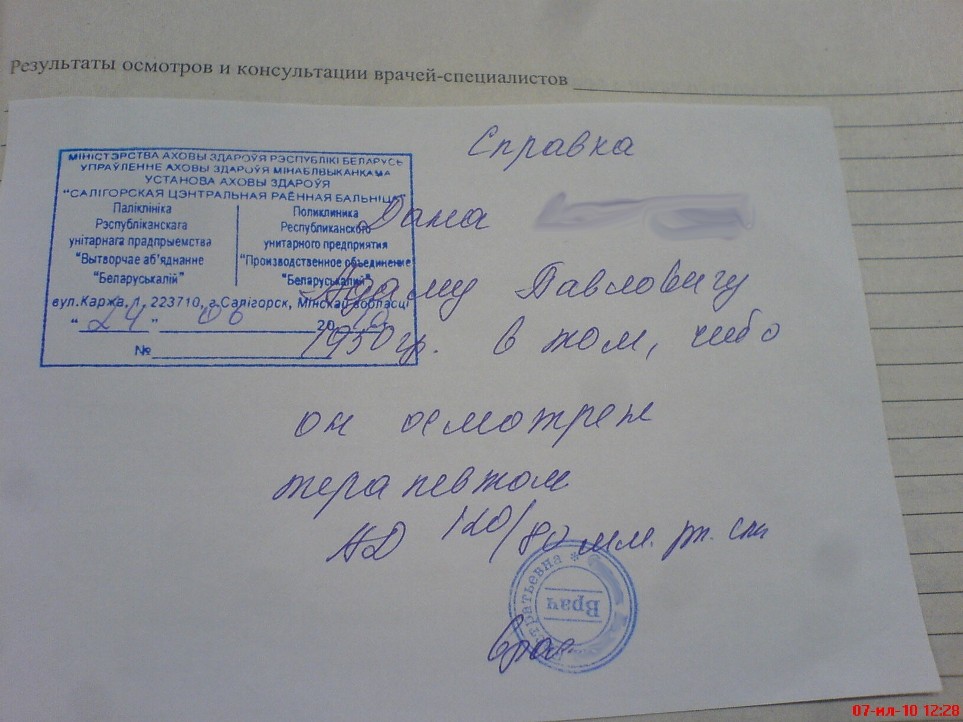 Результаты осмотров и консультации врачей-специалистов
Справка
МІНІСТЭРСТВА АХОВЫ ЗДАРОЎЯ РЭСПУБЛІКІ БЕЛАРУСЬ
УПРАЎЛЕННЕ АХОВЫ ЗДАРОЎЯ МІНАБЛВЫКАНКАМА
УСТАНОВА АХОВЫ ЗДАРОЎЯ
"САЛІГОРСКАЯ ЦЭНТРАЛЬНАЯ РАЁННАЯ БАЛЬНІЦА"
Паліклініка
Рэспубліканскага
унітарнага прадпрыемства
"Вытворчае аб'яднанне
"Беларуськалій"
Поликлиника
Республиканского
унитарного предприятия
"Производственное объединение
"Беларуськалий"
вул.Каржа,1, 223710, г.Салігорск, Мінскай вобласці
"24" 06 2010
№
Дана
Адаму Павловичу
1950гр. в том, чибо
он осмотрен
терапевтом
АД 120/80 мм. рт. ст
Врач
Врач
07-ил-10 12:28